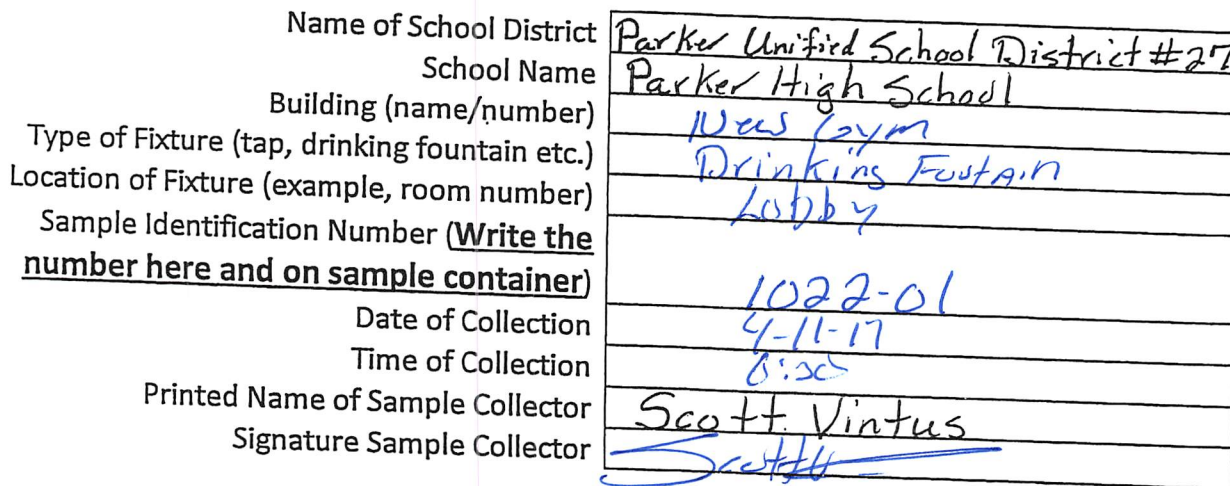 Name of School District Parker Unified School District #27
School Name Parker High School
Building (name/number) New Gym
Type of Fixture (tap, drinking fountain etc.) Drinking Fountain
Location of Fixture (example, room number) Lobby
Sample Identification Number (Write the
number here and on sample container) 1022-01
Date of Collection 4-11-17
Time of Collection
Printed Name of Sample Collector Scott Vintus
Signature Sample Collector